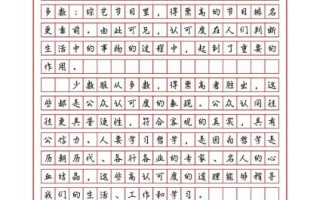 多数；综艺节目里，得票高的节目排名
更靠前。由此可见，认可度在人们判断
生活中的事物的过程中，起到了重要的
作用。
少数服从多数，得票高者胜出，这
些都是公众认可度的表现。公众认同往
往更具普遍性，符合客观的真实，具有
公信力。人要学习哲学，是因为哲学是
历朝历代、各行各业的专家、名人的心
血结晶，这些高认可度的道理能够指导
我们的生活、工作和学习。